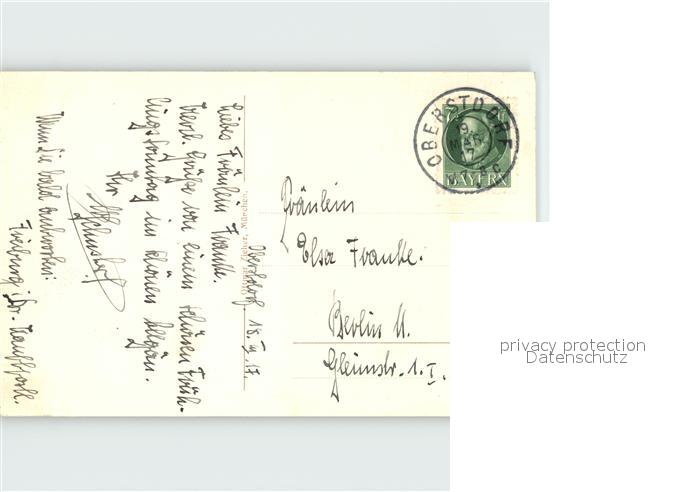 Oberstdorf. 18. III. 17.
Liebes Fräulein Franke.
Herzl. Grüße von einem schönen Früh-
lingssonntag im schönen Allgäu.
Ihr
Wenn Sie bald antworten:
Freiburg i. Br.
Fräulein
Elsa Franke.
Berlin N.
Gleimstr. 1. I.
OBERSTDORF
BAYERN
München.
privacy protection
Datenschutz